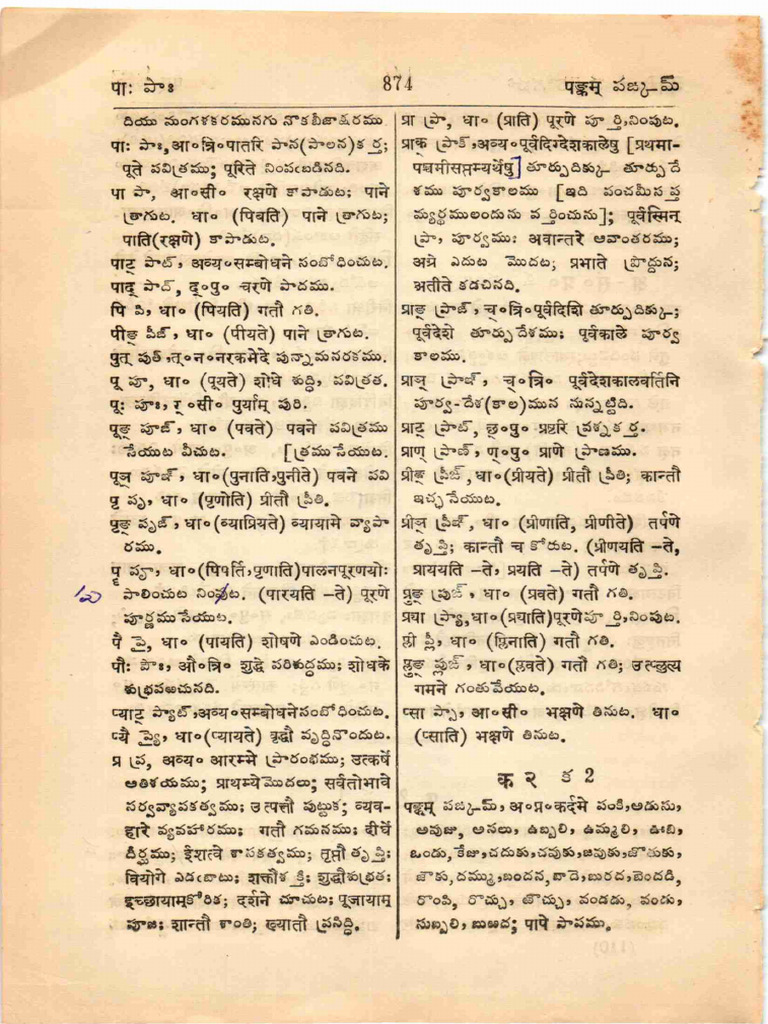 पाः పాః
874
पङ्कम् పఙ్కమ్
దియు మంగళకరమునగు నొకబీజాక్షరము
पाः పాః, ఆ॰త్రి॰ पातरि పాన(పాలన)కర్త;
पूते పవిత్రము; पूरिते నింపఁబడినది.
पा పా, ఆ॰సీ॰ रक्षणे కాపాడుట; पाने
త్రాగుట. ధా॰ (पिबति) पाने త్రాగుట;
पाति(रक्षणे) కాపాడుట.
पाट् పాట్, అవ్య॰सम्बोधने సంబోధించుట.
पाद् పాద్, ద్॰పు॰ चरणे పాదము.
पि పి, ధా॰ (पियति) गतौ గతి.
पीङ् పీఙ్, ధా॰ (पीयते) पाने త్రాగుట.
पुत् పుత్,త్॰న॰नरकभेदे పున్నామనరకము.
पू పూ, ధా॰ (पूयते) शोधे శుద్ధి, పవిత్రత.
पूः పూః, ర్॰సీ॰ पुर्याम् పురి.
पूङ् పూఙ్, ధా॰ (पवते) पवने పవిత్రము
సేయుట వీచుట. [త్రముసేయుట.
पूञ् పూఞ్, ధా॰(पुनाति,पुनीते) पवने పవి
पृ పృ, ధా॰ (पृणोति) प्रीतौ ప్రీతి.
पृङ् పృఙ్, ధా॰(व्याप्रियते) व्यायामे వ్యాపా
రము.
पॄ పౄ, ధా॰(पिपर्ति,पृणाति)पालनपूरणयोः
పాలించుట నింపుట. (पारयति -ते) पूरणे
పూర్ణముసేయుట.
पै పై, ధా॰ (पायति) शोषणे ఎండించుట.
पौः పౌః, ఔ॰త్రి॰ शुद्धे పరిశుద్ధము; शोधके
శుభ్రపఱుచునది.
प्याट् ప్యాట్,అవ్య॰सम्बोधनेసంబోధించుట.
प्यै ప్యై, ధా॰(प्यायते) वृद्धौ వృద్ధినొందుట.
प्र ప్ర, అవ్య॰ आरम्भे ప్రారంభము; उत्कर्षे
అతిశయము; प्राथम्येమొదలు; सर्वतोभावे
సర్వవ్యాపకత్వము; उत्पत्तौ పుట్టుక; व्यव-
हारे వ్యవహారము; गतौ గమనము; दीर्घे
దీర్ఘము; ईशत्वे శాసకత్వము; तृप्तौ తృప్తి;
वियोगे ఎడబాటు; शक्तौశక్తి; शुद्धौశుభ్రత;
इच्छायाम्కోరిక; दर्शने చూచుట; पूजायाम्
పూజ; शान्तौ శాంతి; ख्यातौ ప్రసిద్ధి.
प्रा ప్రా, ధా॰ (प्राति) पूरणे పూర్తి,నింపుట.
प्राक् ప్రాక్,అవ్య॰पूर्वदिग्देशकालेषु [प्रथमा-
पञ्चमीसप्तम्यर्थेषु] తూర్పుదిక్కు తూర్పుదే
శము పూర్వకాలము [ఇది పంచమీసప్త
మ్యర్థములందును వర్తించును]; पूर्वस्मिन्
ప్రా, పూర్వము; अवान्तरे అవాంతరము;
अग्रे ఎదుట మొదట; प्रभाते ప్రొద్దున;
अतीते కడచినది.
प्राङ् ప్రాఙ్, చ్॰త్రి॰पूर्वदिशि తూర్పుదిక్కు;
पूर्वदेशे తూర్పుదేశము; पूर्वकाले పూర్వ
కాలము.
प्राञ् ప్రాఞ్, చ్॰త్రి॰ पूर्वदेशकालवर्तिनि
పూర్వ-దేశ(కాల)మున నున్నట్టిది.
प्राट् ప్రాట్, ఛ్॰పు॰ प्रष्टरि ప్రశ్నకర్త.
प्राण् ప్రాణ్, ణ్॰పు॰ प्राणे ప్రాణము.
प्रीङ् ప్రీఙ్,ధా॰(प्रीयते) प्रीतौ ప్రీతి; कान्तौ
ఇచ్ఛసేయుట.
प्रीञ् ప్రీఞ్, ధా॰ (प्रीणाति, प्रीणीते) तर्पणे
తృప్తి; कान्तौ च కోరుట. (प्रीणयति -ते,
प्राययति -ते, प्रयति -ते) तर्पणे తృప్తి.
प्रुङ् ప్రుఙ్, ధా॰ (प्रवते) गतौ గతి.
प्रया ప్ర్యా,ధా॰(प्रयाति)पूरणेపూర్తి,నింపుట.
प्ली ప్లీ, ధా॰ (प्लिनाति) गतौ గతి.
प्लुङ् ప్లుఙ్, ధా॰(प्लवते) गतौ గతి; उत्प्लुत्य
गमने గంతువేయుట.
प्सा ప్సా, ఆ॰సీ॰ भक्षणे తినుట. ధా॰
(प्साति) भक्षणे తినుట.
क २ క 2
पङ्कम् పఙ్కమ్, అ॰ప్ర॰कर्दमे పంకి,అడుసు,
అవుజు, అనలు, ఉబ్బలి, ఉమ్మలి, ఊబి,
ఒండు,కేజు,చదుకు,చవుకు,జవుకు,జొతుకు,
జౌకు,దమ్ము,బందన,బాదె,బురద,బెందడి,
రొంపి, రొచ్చు, జొచ్చు, వండడు, వండు,
సుబ్బలి, బుఱద; पापे పాపము.